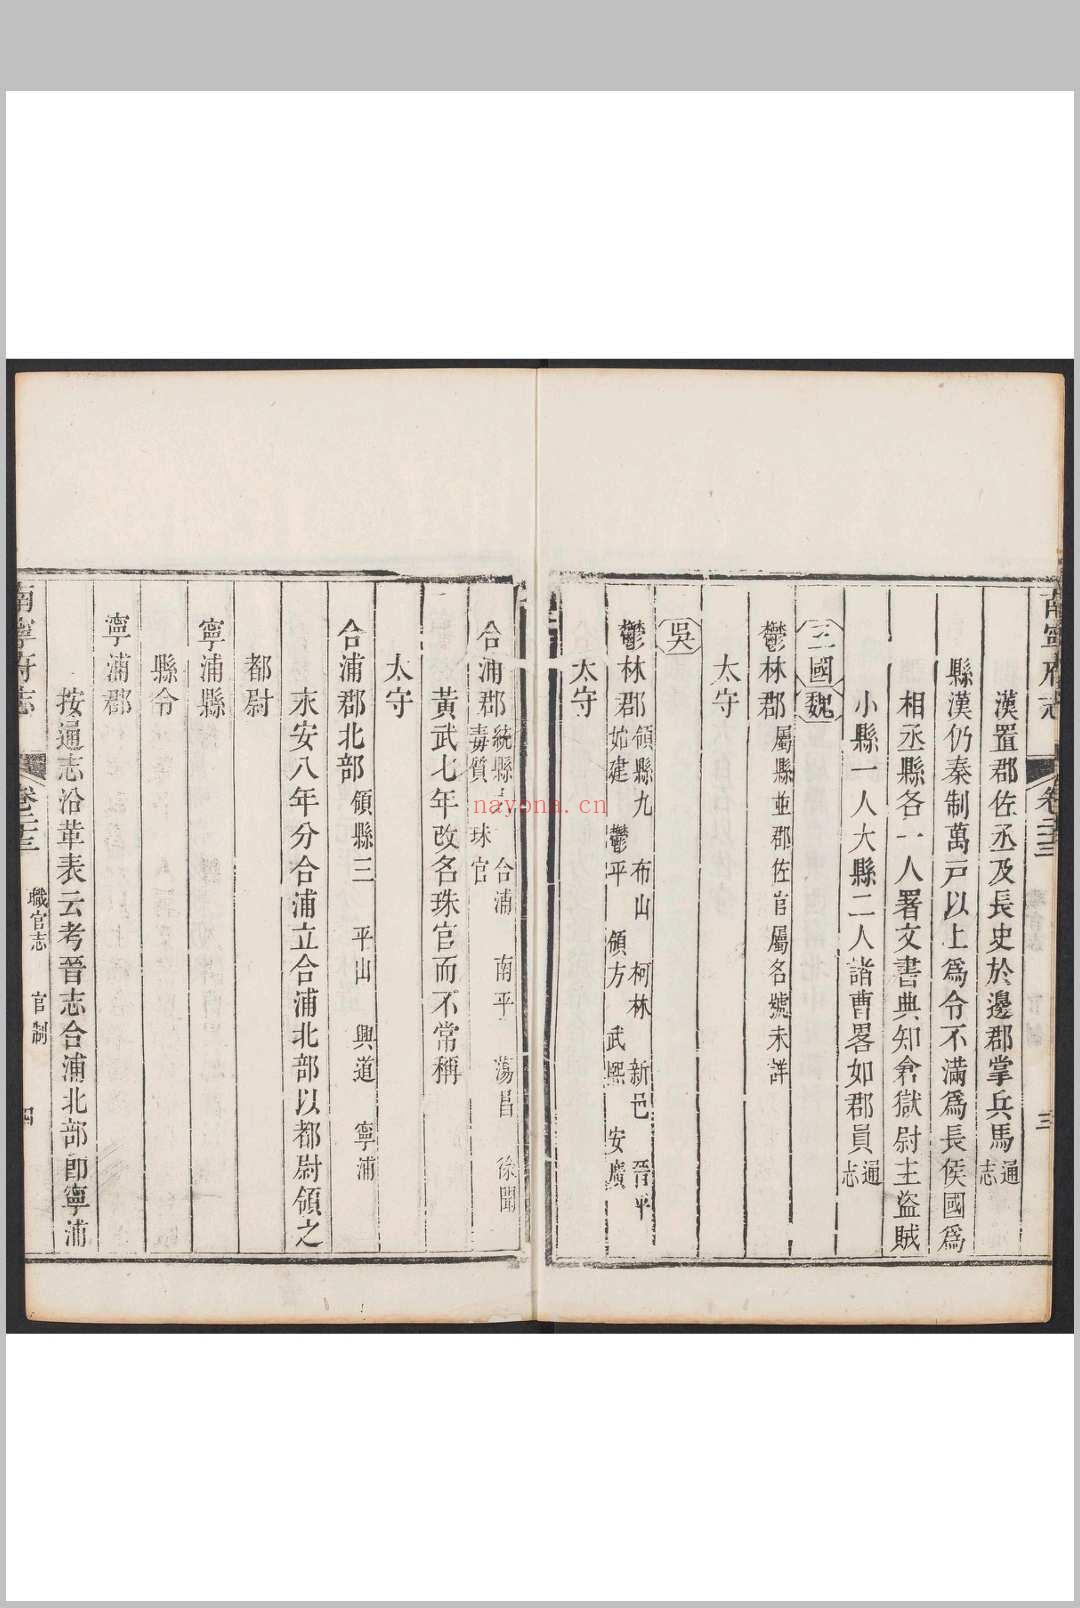 南寧府志 卷二十三 三
漢置郡佐丞及長史於邊郡掌兵馬通志
縣漢仍秦制萬戸以上爲令不滿爲長侯國爲
相丞縣各一人署文書典知倉獄尉主盜賊
小縣一人大縣二人諸曹畧如郡員通志
三國魏
鬱林郡屬縣並郡佐官屬名號未詳
太守
吳
鬱林郡領縣九 布山 柯林 新邑 晉平
始建 鬱平 領方 武熙 安廣
太守
合浦郡統縣 合浦 南平 蕩昌 徐聞
毒質 珠官
黃武七年改名珠官而不常稱
太守
合浦郡北部領縣三 平山 興道 寧浦
永安八年分合浦立合浦北部以都尉領之
都尉
寧浦縣
縣令
寧浦郡
按通志沿革表云考晉志合浦北部卽寧浦
南寧府志 卷二十三 職官志 官制 四
nayona.cn